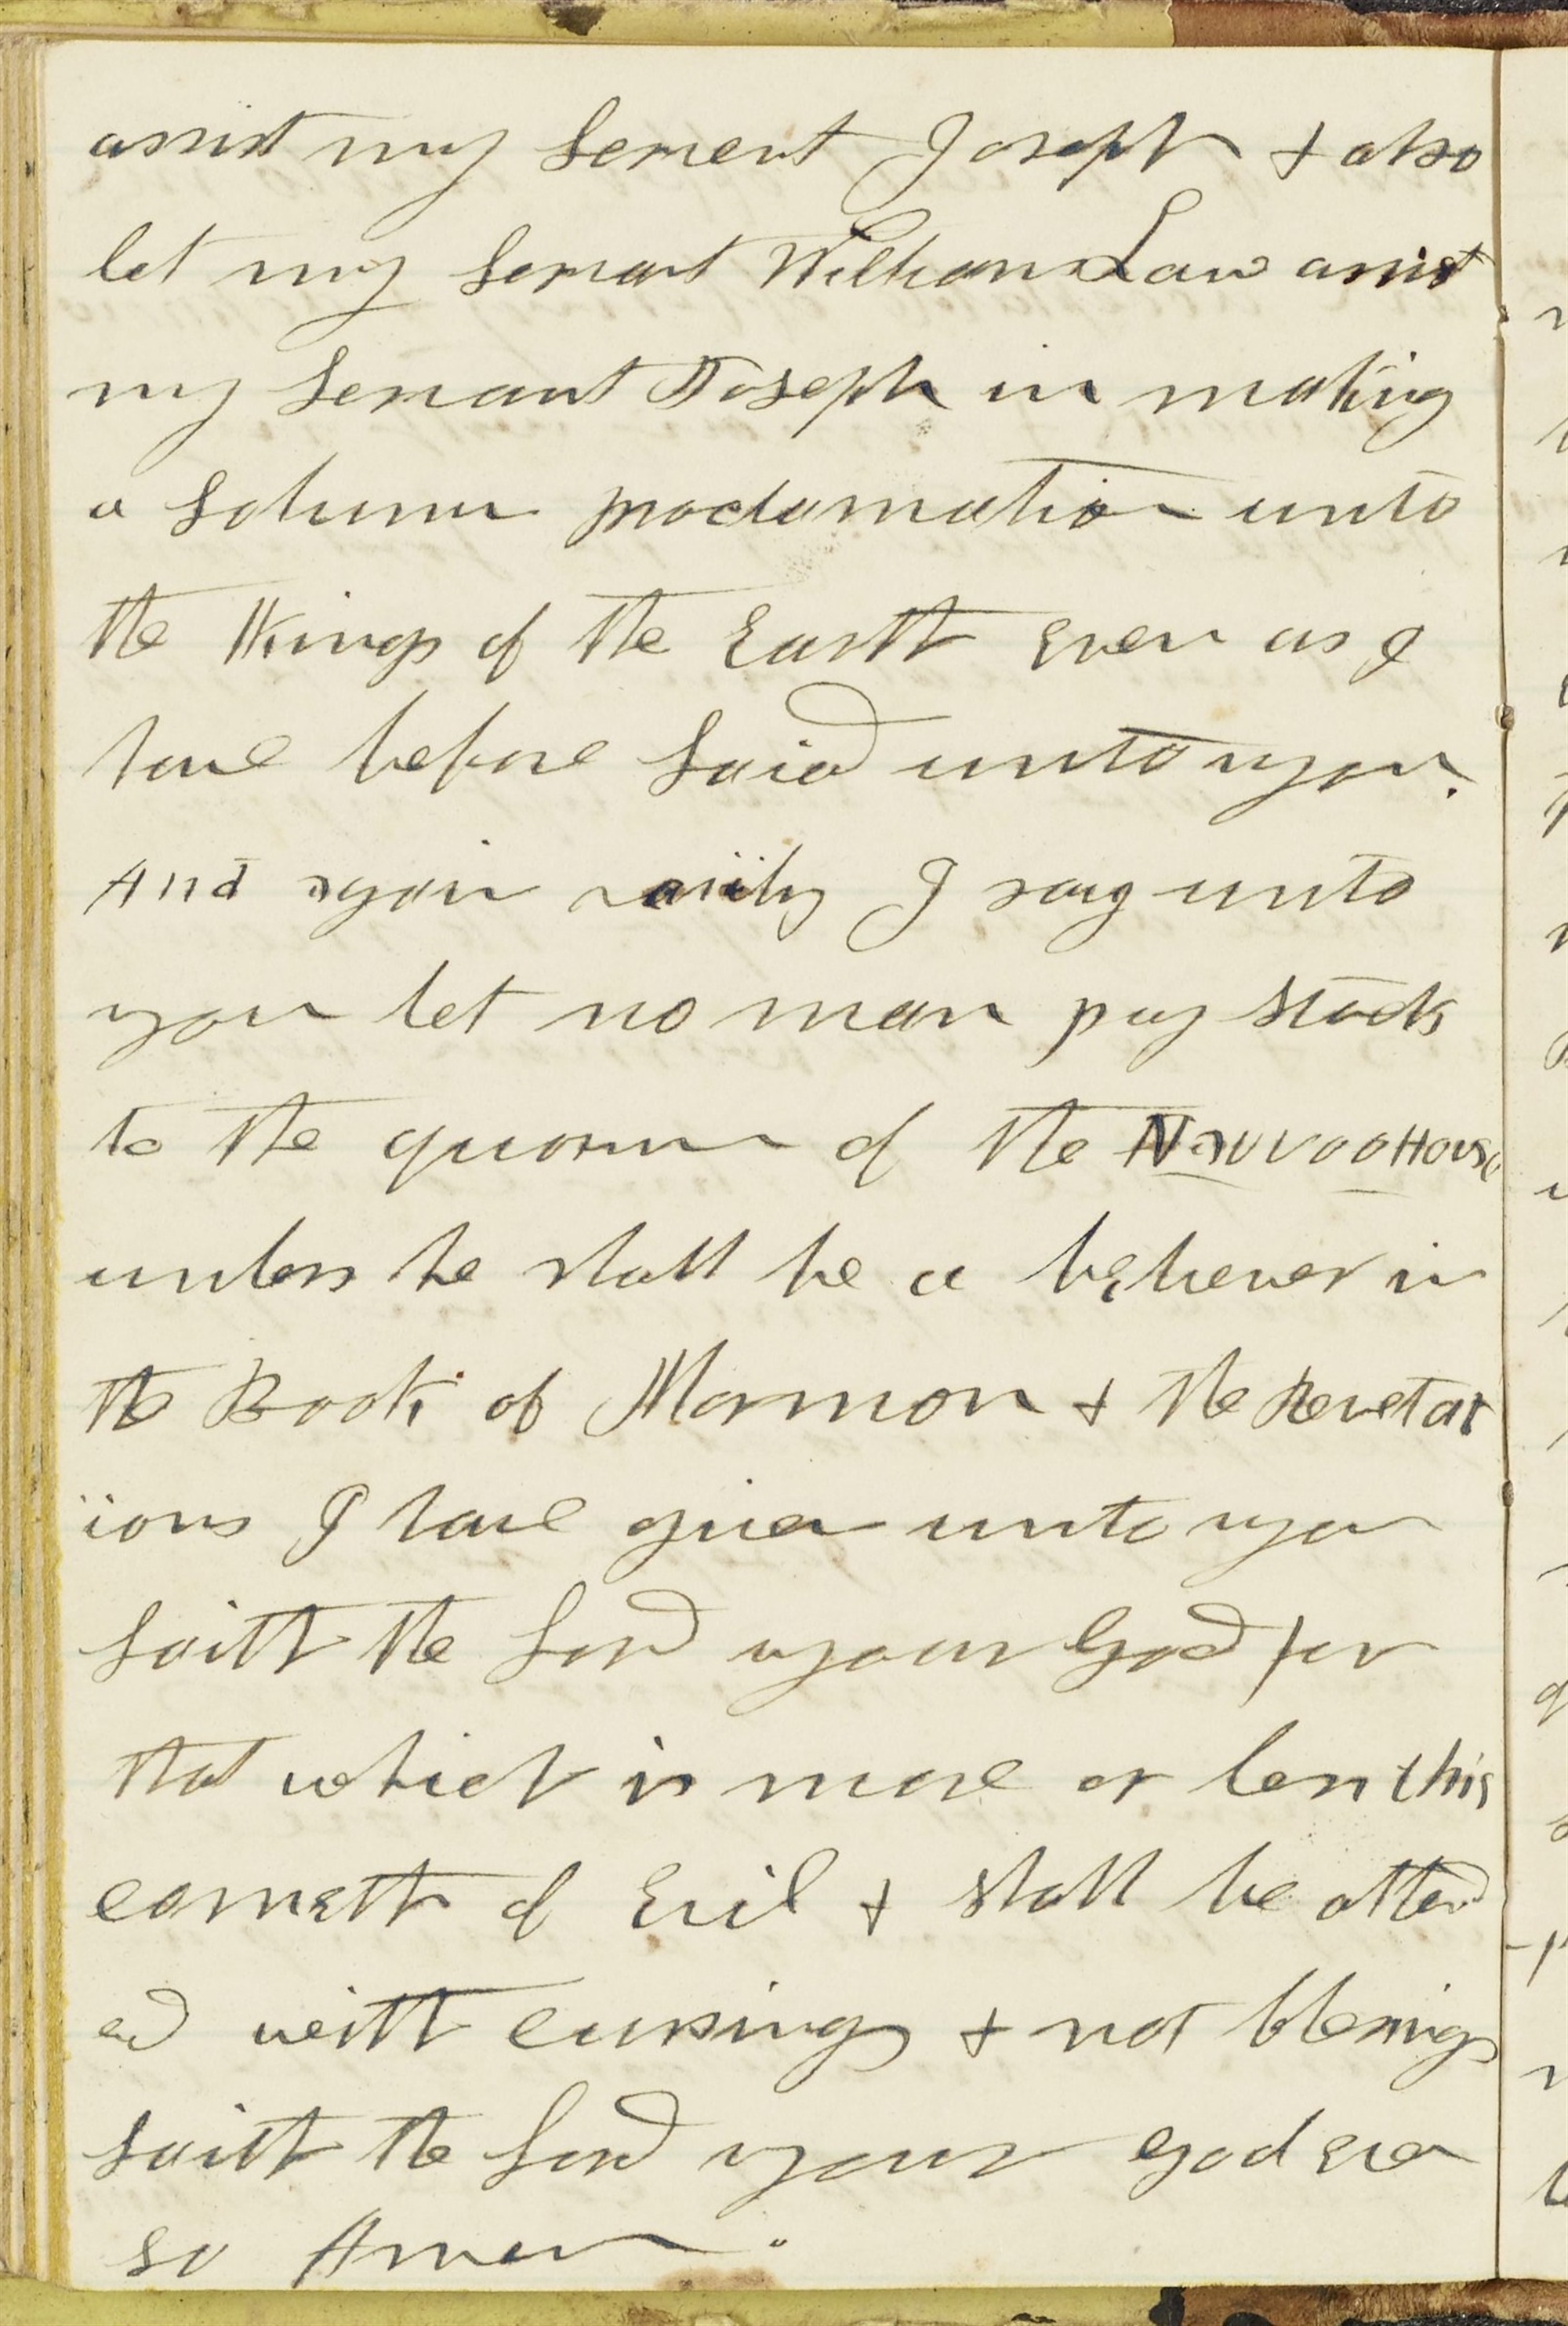 assist my servent Joseph & also
let my servant William Law assist
my servant Joseph in making
a solumn proclamation unto
the Kings of the Earth Even as I
have before said unto you.
And again verily I say unto
you let no man pay stock
to the quorum of the Nauvoo House
unless he shall be a believer in
the Book of Mormon & the Revelat
ions I have given unto you
saith the Lord your God for
that which is more or less this
cometh of Evil & shall be attend
ed with cursings & not blessings
saith the Lord your God Even
so Amen.